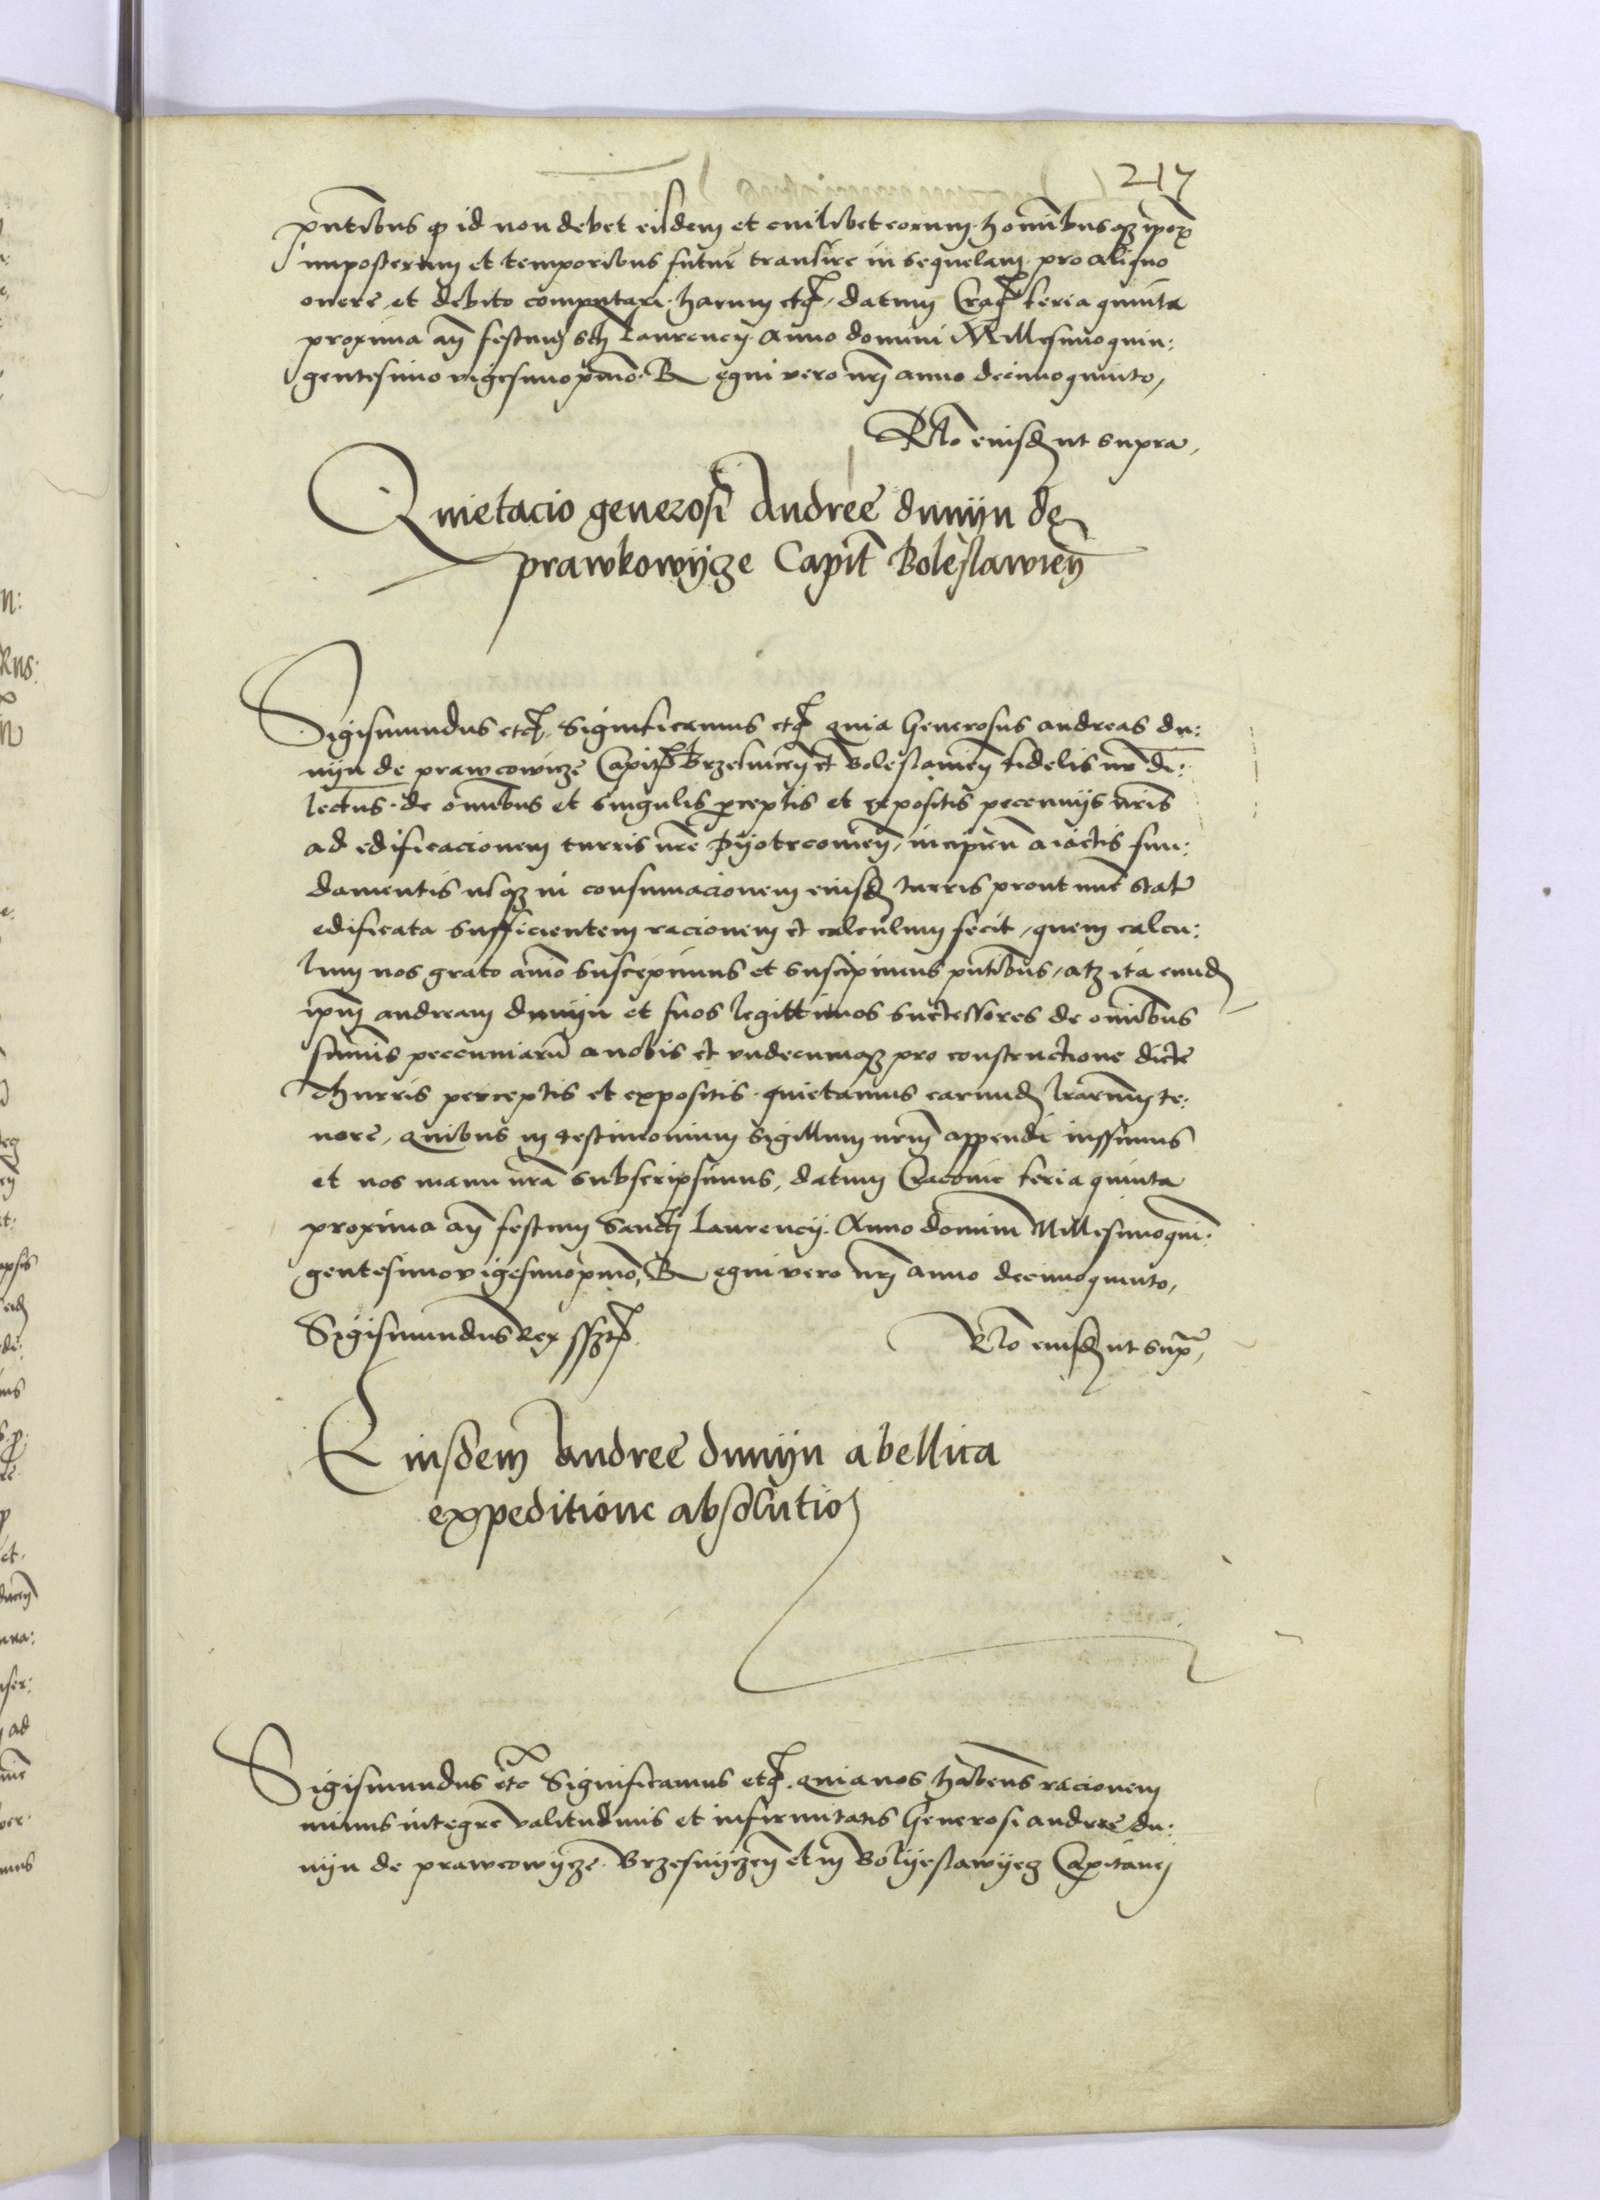 217
pntibus q id non debet eisdem et cuilibet eorum hominibusqz ipor
imposterum et temporibus futur transire in sequelam pro aliquo
onere et debito computari harum etc datum Crac feria quinta
proxima an festum scti Laurencij Anno domini Millesimoquin:
gentesimo vigesimoprimo Regni vero nri anno decimoquinto,
Rlo eiusd ut supra,
Quietacio generosi Andree dunijn de
prawkowijcze Capit Boleslawien
Sigismundus etc Significamus etc quia Generosus andreas du:
nijn de prawcowicze Capit Brzesnicen et Boleslawien fidelis nr di:
lectus de omibus et singulis perceptis et expositis pecunijs nris
ad edificacionem turris nre Pijotrcowien, incipien a iactis fun:
damentis usqz in consumacionem eiusd turris prout nunc statu
edificata sufficientem racionem et calculum fecit, quem calcu:
lum nos grato animo suscepimus et suscipimus pntibus, atqz ita eund
ipm andream dunijn et suos legittimos successores de omibus
summis pecuniaru a nobis et undecumqz pro constructione dicte
thurris perceptis et expositis quietamus earund lrarum te:
nore, quibus in testimonium Sigillum nrm appendi iussimus
et nos manu nra subscripsimus, datum Cracovie feria quinta
proxima an festum Sancti Laurencij Anno domini Millesimoqui:
gentesimovigesimoprimo, Regni vero nri anno decimoquinto,
Sigismundus Rex sszt
Rlo eiusd ut supr,
Eiusdem Andree dunijn a bellica
expeditione absolutio
Sigismundus etc Significamus etc quia nos habens racionem
minus integre valitudinis et infirmitatis Generosi andree du:
nijn de prawcowijcze Brzesnijczen et in Bolijeslawijecz Capitanei